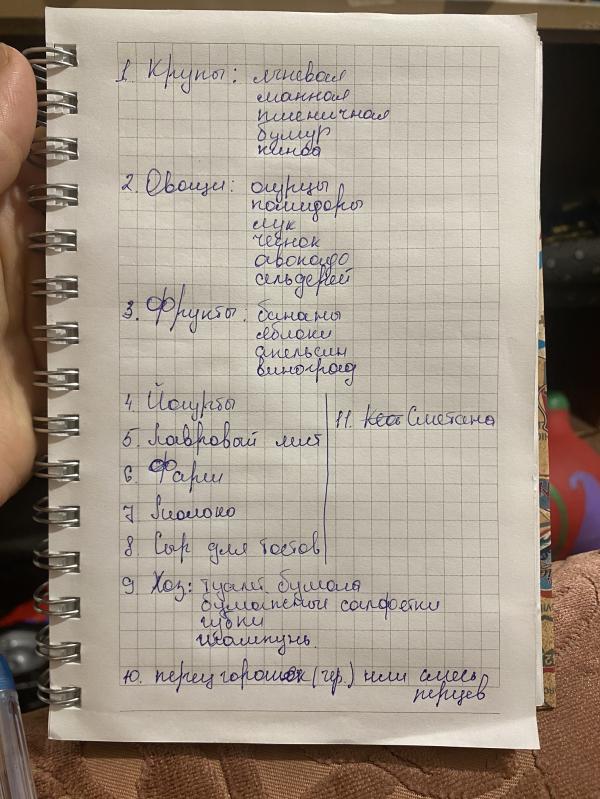 1. Крупы: ячневая
манная
пшеничная
булгур
киноа
2. Овощи: огурцы
помидоры
лук
чеснок
авокадо
сельдерей
3. Фрукты: бананы
яблоки
апельсин
виноград
4. Йогурты
5. Лавровый лист
6 Фарш
7 Молоко
8 Сыр для тостов
11. Сметана
9 Хоз: туалет. бумага
бумажные салфетки
губки
шампунь.
10. перец горошек (чер.) или смесь
перцев